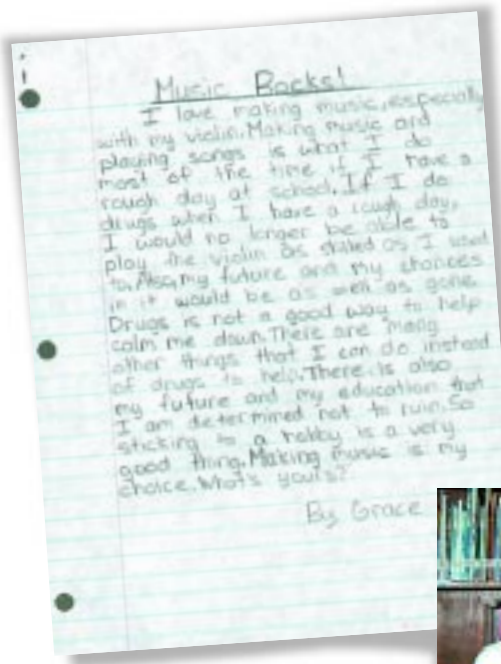 Music Rocks!
I love making music, especially
with my violin. Making music and
playing songs is what I do
most of the time if I have a
rough day at school. If I do
drugs when I have a rough day,
I would no longer be able to
play the violin as skilled as I used
to. Also, my future and my chances
in it would be as well as gone.
Drugs is not a good way to help
calm me down. There are many
other things that I can do instead
of drugs to help. There is also
my future and my education that
I am determined not to ruin. So
sticking to a hobby is a very
good thing. Making music is my
choice. What's yours?
By Grace